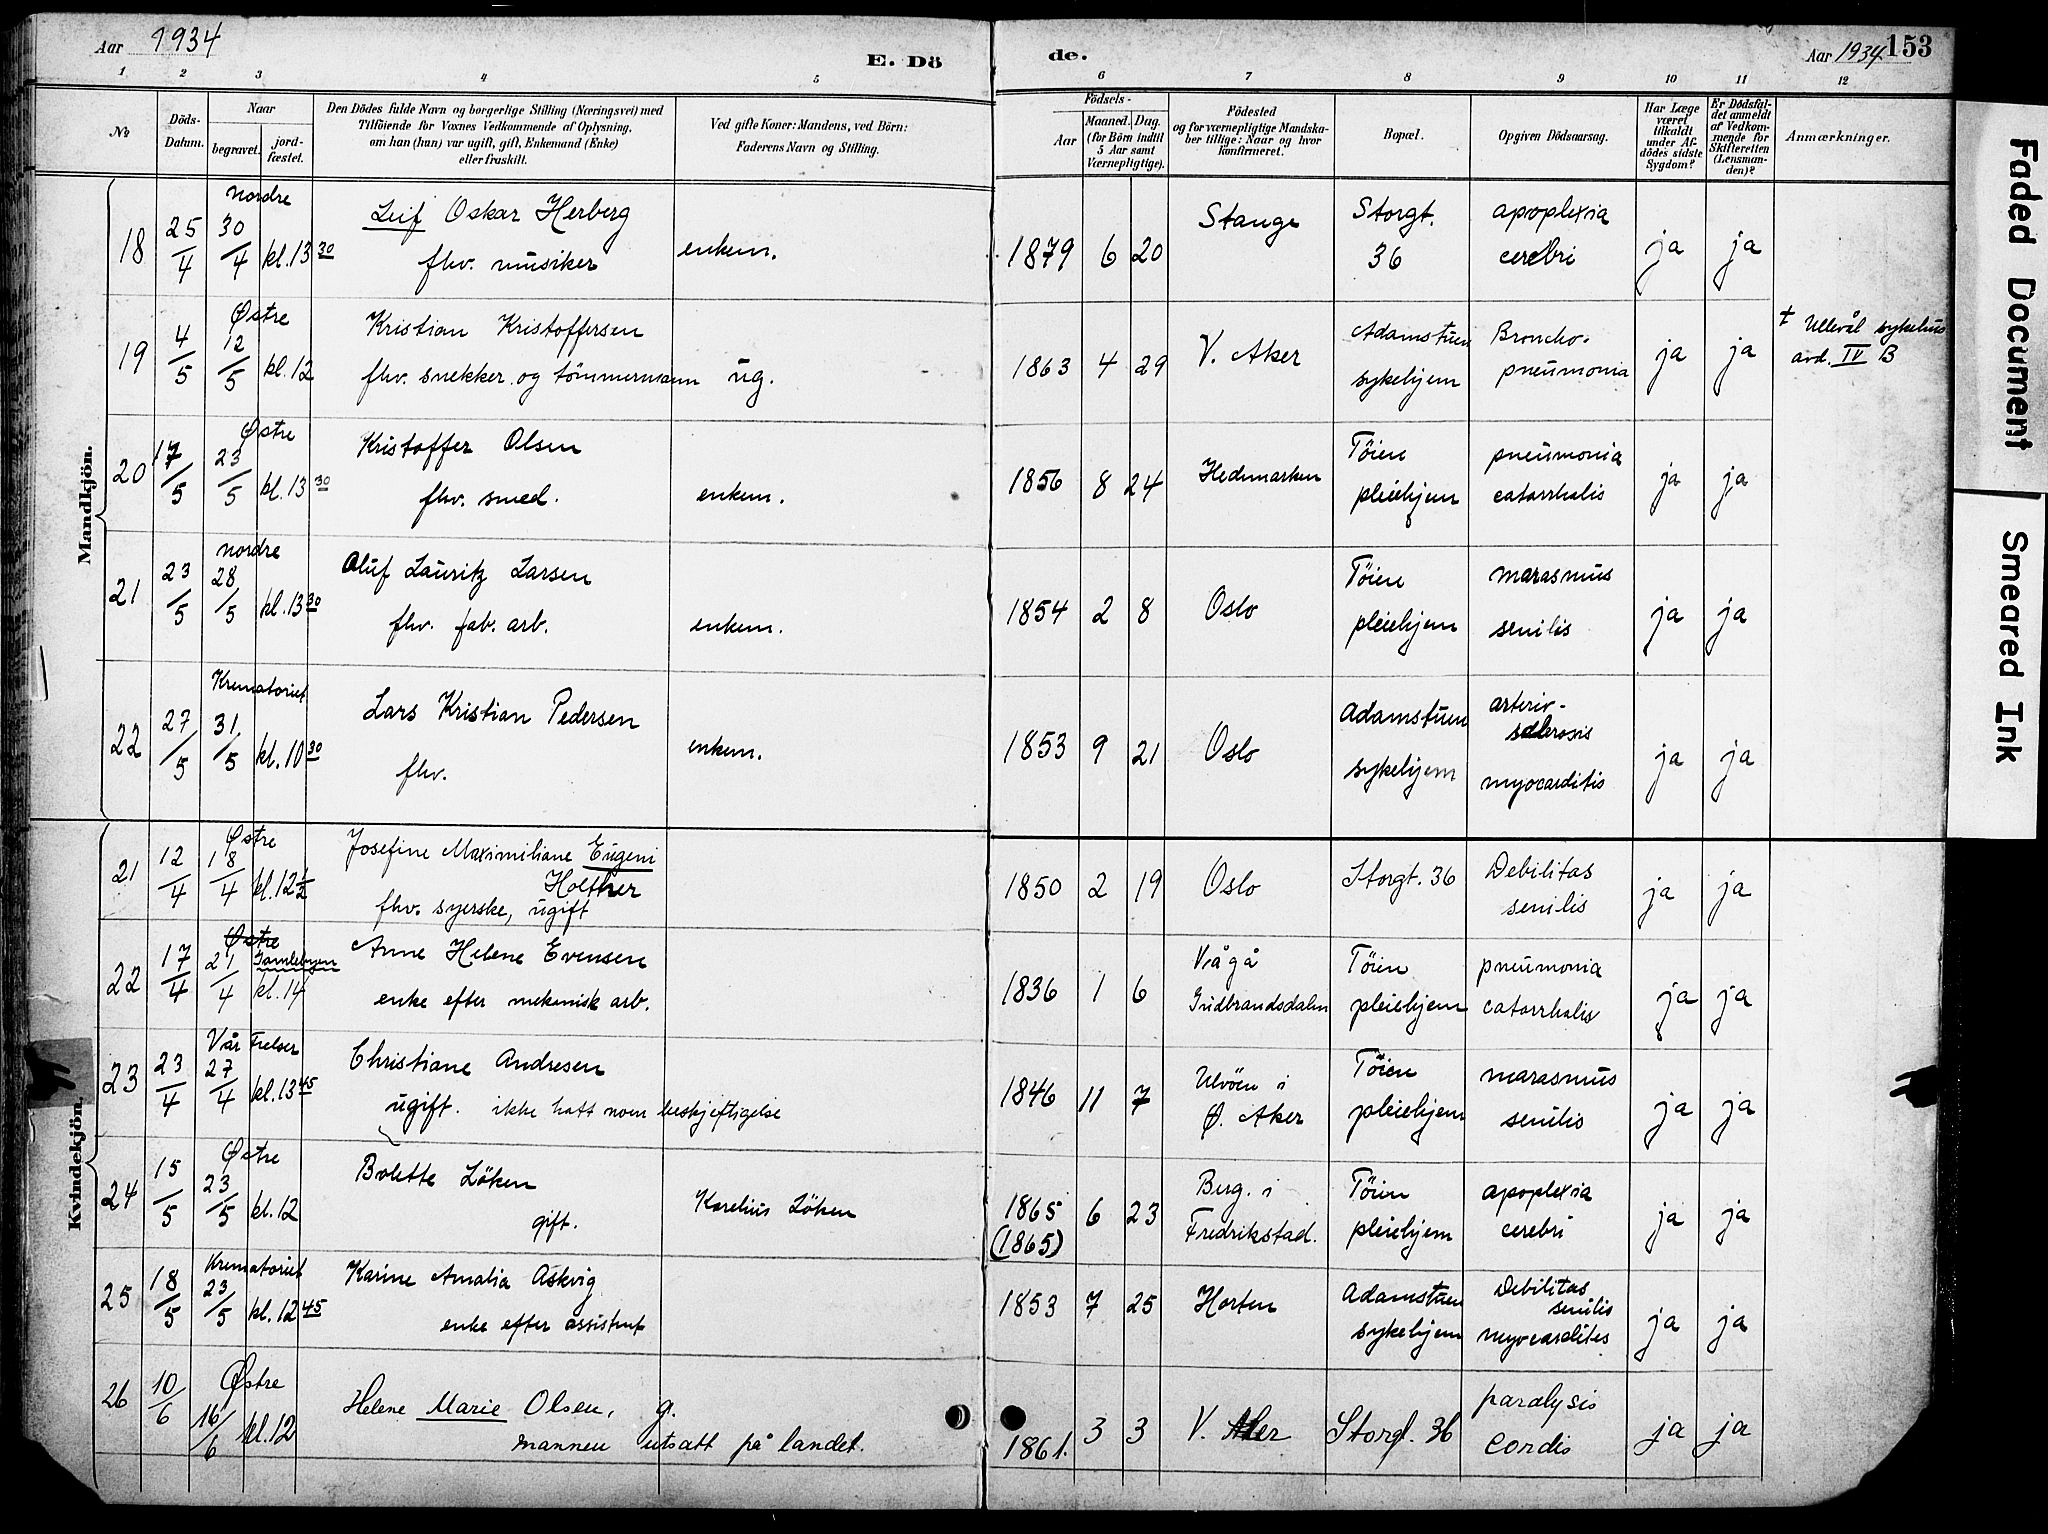 Aar 1934
E. Dö
de.
Aar 1934 153
1 2 3 4 5 6 7 8 9 10 11 12
No
Döds-Datum.
Naar
begravet.
jord-fæstet.
Den Dödes fulde Navn og borgerlige Stilling (Næringsvei) med
Tilföiende for Voxnes Vedkommende af Oplysning,
om han (hun) var ugift, gift, Enkemand (Enke)
eller fraskilt.
Ved gifte Koner: Mandens, ved Börn:
Faderens Navn og Stilling.
Födsels-
Aar
Maaned. Dag.
(for Börn indtil
5 Aar samt
Værnepligtige).
Födested
og for værnepligtige Mandska-
ber tillige: Naar og hvor
konfirmeret.
Bopæl.
Opgiven Dödsaarsag.
Har Læge
været
tilkaldt
under Af-
dödes sidste
Sygdom?
Er Dödsfal-
det anmeldt
af Vedkom-
mende for
Skifteretten
(Lensman-
den)?
Anmærkninger.
Mandkjön.
nordre
18 25/4 30/4 kl. 13 30 Leif Oskar Herberg
fhv. musiker enkem. 1879 6 20 Stange Storgt. 36 apoplexia cerebri ja ja
Østre
19 4/5 12/5 kl. 12 Kristian Kristoffersen
fhv. snekker og tömmermann ug. 1863 4 29 V. Aker Adamstuen sykehjem Broncho-pneumonia ja ja † Ullevål sykehus avd. IV B
Østre
20 17/5 23/5 kl. 13 30 Kristoffer Olsen
fhv. smed. enkem. 1856 8 24 Hedemarken Töien pleiehjem pneumonia catarrhalis ja ja
nordre
21 23/5 28/5 kl. 13 30 Oluf Lauritz Larsen
fhv. fab. arb. enkem. 1854 2 8 Oslo Töien pleiehjem marasmus senilis ja ja
Krematoriet
22 27/5 31/5 kl. 10 30 Lars Kristian Pedersen
fhv. enkem. 1853 9 21 Oslo Adamstuen sykehjem arterio-sclerosis myocarditis ja ja
Kvindekjön.
Østre
21 12/4 18/4 kl. 12 1/2 Josefine Maximiliane Eugeni
Holther
fhv. syerske, ugift 1850 2 19 Oslo Storgt. 36 Debilitas senilis ja ja
Østre
Gamlebyen
22 17/4 21/4 kl. 14 Anne Helene Evensen
enke efter mekanisk arb. 1836 1 6 Vågå Gudbrandsdalen Töien pleiehjem pneumonia catarrhalis ja ja
Vår Frelser
23 23/4 27/4 kl. 13 45 Christiane Andresen
ugift. ikke hatt noen beskjeftigelse 1846 11 7 Ulvöen i Ø. Aker Töien pleiehjem marasmus senilis ja ja
Østre
24 15/5 23/5 kl. 12 Bolette Löken
gift. Karelius Löken 1865 (1865) 6 23 Berg. i Fredrikstad. Töien pleiehjem apoplexia cerebri ja ja
Krematoriet
25 18/5 23/5 kl. 12 45 Karine Amalia Askvig
enke efter assistent 1853 7 25 Horten Adamstuen sykehjem Debilitas senilis myocardites ja ja
Østre
26 10/6 16/6 kl. 12 Helene Marie Olsen, g.
mannen utsatt på landet. 1861. 3 3 V. Aker Storgt. 36 paralysis cordis ja ja
Faded Document
Smeared Ink